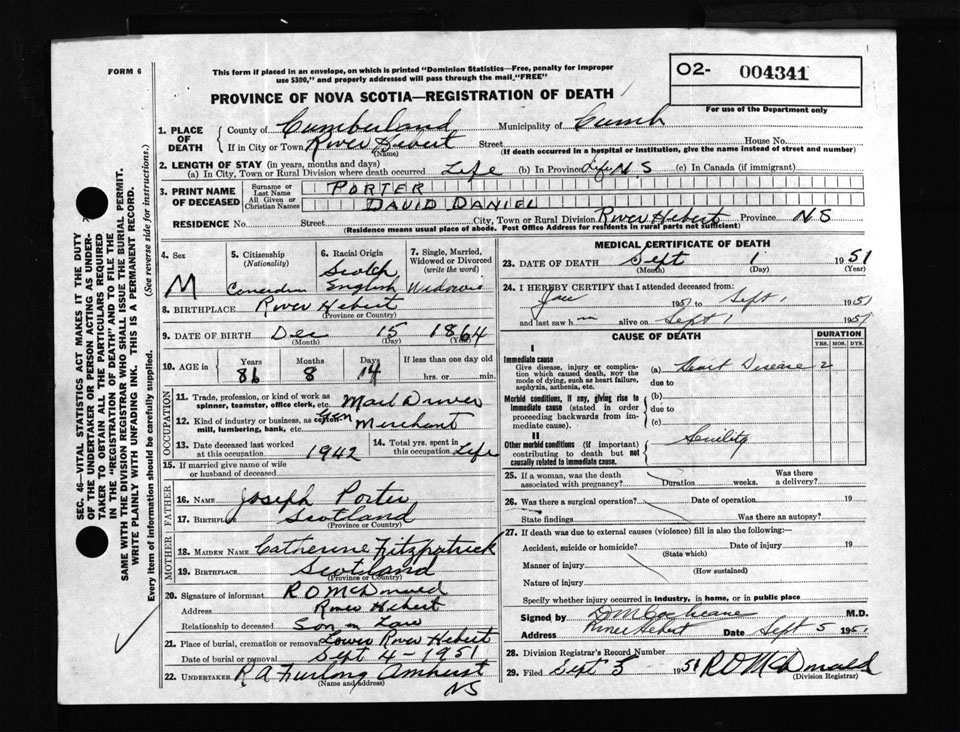 FORM 6
This form if placed in an envelope, on which is printed "Dominion Statistics—Free, penalty for improper
use $300," and properly addressed will pass through the mail, "FREE"
O2- 004341
For use of the Department only
PROVINCE OF NOVA SCOTIA—REGISTRATION OF DEATH
1. PLACE OF DEATH
County of Cumberland Municipality of Cumb
If in City or Town River Hebert Street House No.
(Name) (If death occurred in a hospital or institution, give the name instead of street and number)
2. LENGTH OF STAY (in years, months and days)
(a) In City, Town or Rural Division where death occurred Life (b) In Province Life N S (c) In Canada (if immigrant)
3. PRINT NAME OF DECEASED
Surname or Last Name PORTER
All Given or Christian Names DAVID DANIEL
RESIDENCE No. Street City, Town or Rural Division River Hebert Province N S
(Residence means usual place of abode. Post Office Address for residents in rural parts not sufficient)
4. Sex M
5. Citizenship (Nationality) Canadian
6. Racial Origin Scotch English
7. Single, Married, Widowed or Divorced (write the word)
8. BIRTHPLACE River Hebert
(Province or Country)
9. DATE OF BIRTH Dec 15 1864
(Month) (Day) (Year)
10. AGE in Years 86 Months 8 Days 14 If less than one day old
hrs. or min.
OCCUPATION
11. Trade, profession, or kind of work as
spinner, teamster, office clerk, etc. Mail Driver
12. Kind of industry or business, as cotton
mill, lumbering, bank, etc. Gen Merchant
13. Date deceased last worked
at this occupation 1942
14. Total yrs. spent in
this occupation Life
15. If married give name of wife
or husband of deceased
FATHER
16. NAME Joseph Porter
17. BIRTHPLACE Scotland
(Province or Country)
MOTHER
18. MAIDEN NAME Catherine Fitzpatrick
19. BIRTHPLACE Scotland
(Province or Country)
20. Signature of informant R D McDonald
Address River Hebert
Relationship to deceased Son in Law
21. Place of burial, cremation or removal Lower River Hebert
Date of burial or removal Sept 4 - 1951
22. UNDERTAKER R A Furlong Amherst
(Name and address) NS
MEDICAL CERTIFICATE OF DEATH
23. DATE OF DEATH Sept 1 1951
(Month) (Day) (Year)
24. I HEREBY CERTIFY that I attended deceased from:
Jan 1951 to Sept 1 1951
and last saw h m alive on Sept 1 1951
CAUSE OF DEATH
DURATION
YRS. MOS. DYS.
I
Immediate cause
Give disease, injury or complication which caused death, NOT the mode of dying, such as heart failure, asphyxia, asthenia, etc.
(a) Heart Disease 2
due to
Morbid conditions, if any, giving rise to immediate cause (stated in order proceeding backwards from immediate cause).
(b)
due to
(c)
II
Other morbid conditions (if important) contributing to death but not causally related to immediate cause.
Senility
25. If a woman, was the death
associated with pregnancy? Duration weeks. Was there a delivery?
26. Was there a surgical operation? Date of operation 19
State findings Was there an autopsy?
27. If death was due to external causes (violence) fill in also the following:—
Accident, suicide or homicide? Date of injury 19
(State which)
Manner of injury
(How sustained)
Nature of injury
Specify whether injury occurred in industry, in home, or in public place
Signed by D M Cochrane M.D.
Address River Hebert Date Sept 5 1951
28. Division Registrar's Record Number
29. Filed Sept 5 1951 R D McDonald
(Division Registrar)
SEC. 46—VITAL STATISTICS ACT MAKES IT THE DUTY
OF THE UNDERTAKER OR PERSON ACTING AS UNDER-
TAKER TO OBTAIN ALL THE PARTICULARS REQUIRED
IN THE "REGISTRATION OF DEATH" AND TO FILE THE
SAME WITH THE DIVISION REGISTRAR WHO SHALL ISSUE THE BURIAL PERMIT.
WRITE PLAINLY WITH UNFADING INK. THIS IS A PERMANENT RECORD.
Every item of information should be carefully supplied. (See reverse side for instructions.)